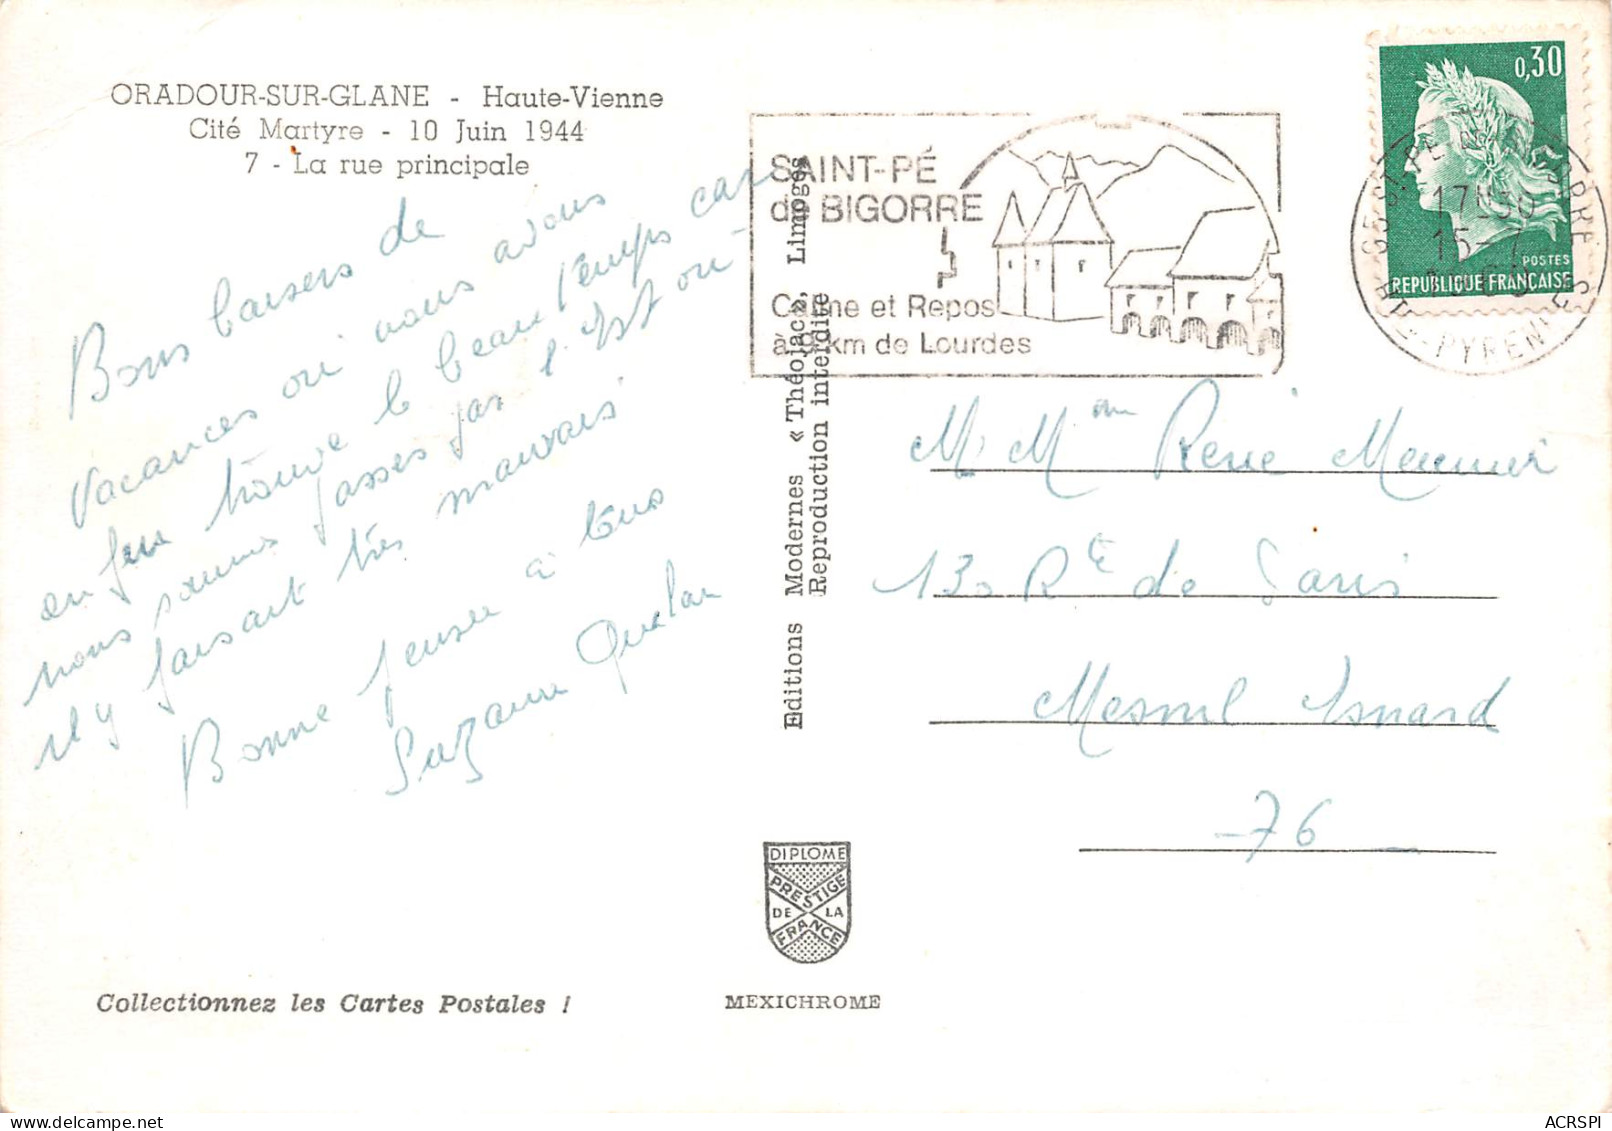 ORADOUR-SUR-GLANE - Haute-Vienne
Cité Martyre - 10 Juin 1944
7 - La rue principale
Bons baisers de
Vacances où nous avons
un peu trouvé le beau temps car
nous sommes passés par l'Est où
il y faisait très mauvais
Bonne pensée à tous
Suzanne
SAINT-PÉ
de BIGORRE
Calme et Repos
à km de Lourdes
0,30
POSTES
REPUBLIQUE FRANÇAISE
17H30
15-7
PYRENEES
Editions Modernes « Théojac », Limoges
Reproduction interdite
M. Mme René Meunier
130 Rte de Paris
Mesnil Esnard
76
DIPLOME
PRESTIGE
DE LA
FRANCE
Collectionnez les Cartes Postales !
MEXICHROME
ACRSPI